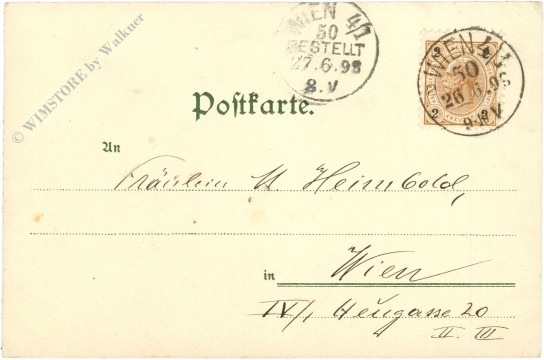 © WIMSTORE by Walkner
WIEN 4/1
50
BESTELLT
27.6.98
8.V
WIEN 4/1
50
26.6.98
2
2
2
Postkarte.
An
Fräulein M Heimbold,
in Wien
IV/1, Heugasse 20
II. III